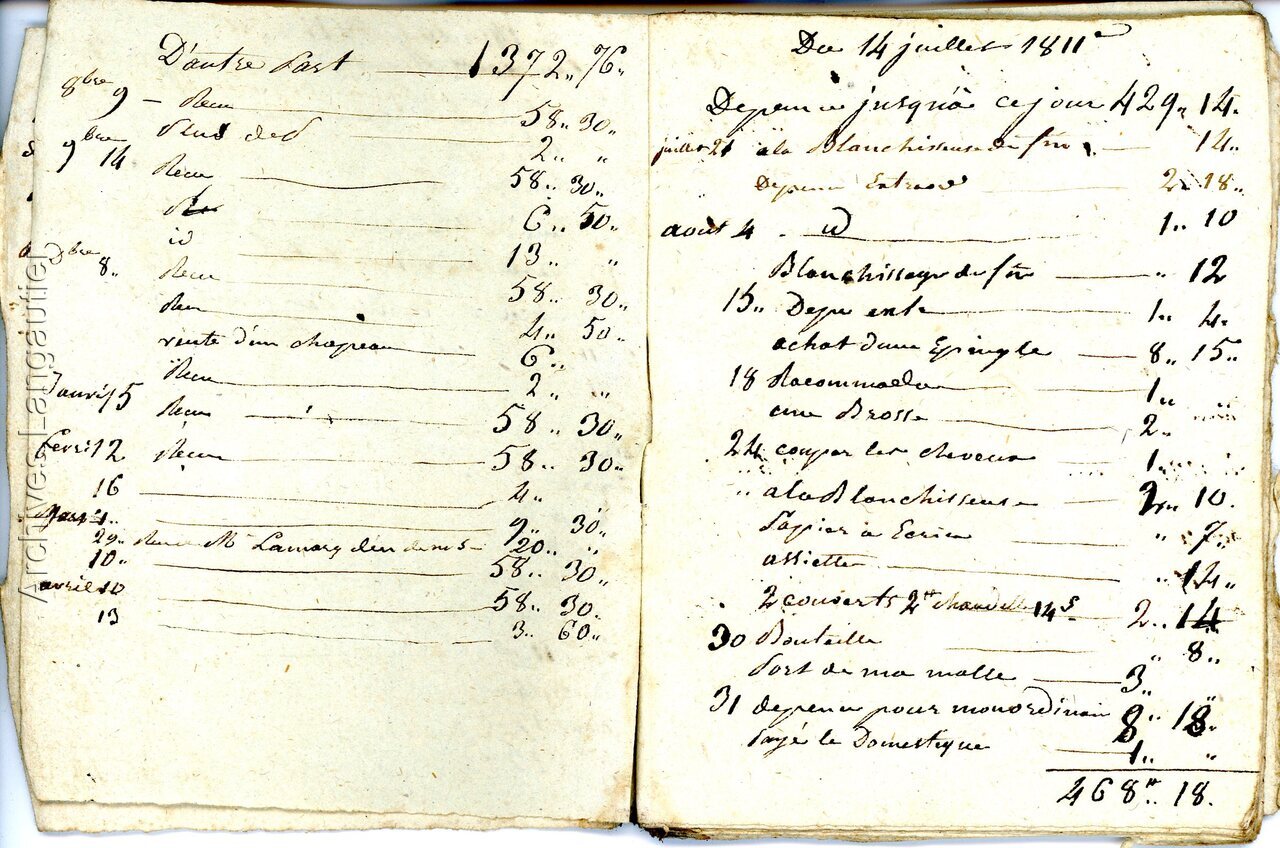 D'autre Part 1372.. 76..
8bre 9 - Recu 58.. 30..
Plus ded 2.. "
9bre 14 Recu 58.. 30..
6.. 50..
id 13.. "
8.. Recu 58.. 30..
Recu 4.. 50..
vente d'un chapeau 6..
Recu 2.. "
Janvr 5 Recu 58.. 30..
Fevri 12 Recu 58.. 30..
16 4..
Mars 1.. 9.. 30..
29.. Recu de Mr 20.. "
10.. 58.. 30..
avril 10 58.. 30..
13 3.. 60..
Archives Langautier
Du 14 juillet 1811
Depence jusqu'à ce jour 429.. 14..
juillet 21 a la Blanchisseuse de fin 14..
Depence Extraord 2.. 18..
aout 4 - id 1.. 10
Blanchissage de fin " 12
15.. Depce exte 1.. 4..
achat d'une Epingle 8.. 15..
18 Racommodee 1.. ..
une Brosse 2..
24 couper les cheveux 1..
" a la Blanchisseuse 2.. 10.
Papier a Ecrire " 7..
assiette " 12..
2 couverts 2tt chandelle 14s 2.. 14
30 Bouteille " 8..
Port de ma malle 3.. "
31 depence pour mon ordinair 8.. 18.
Payé le Domestique 1.. "
468tt.. 18.